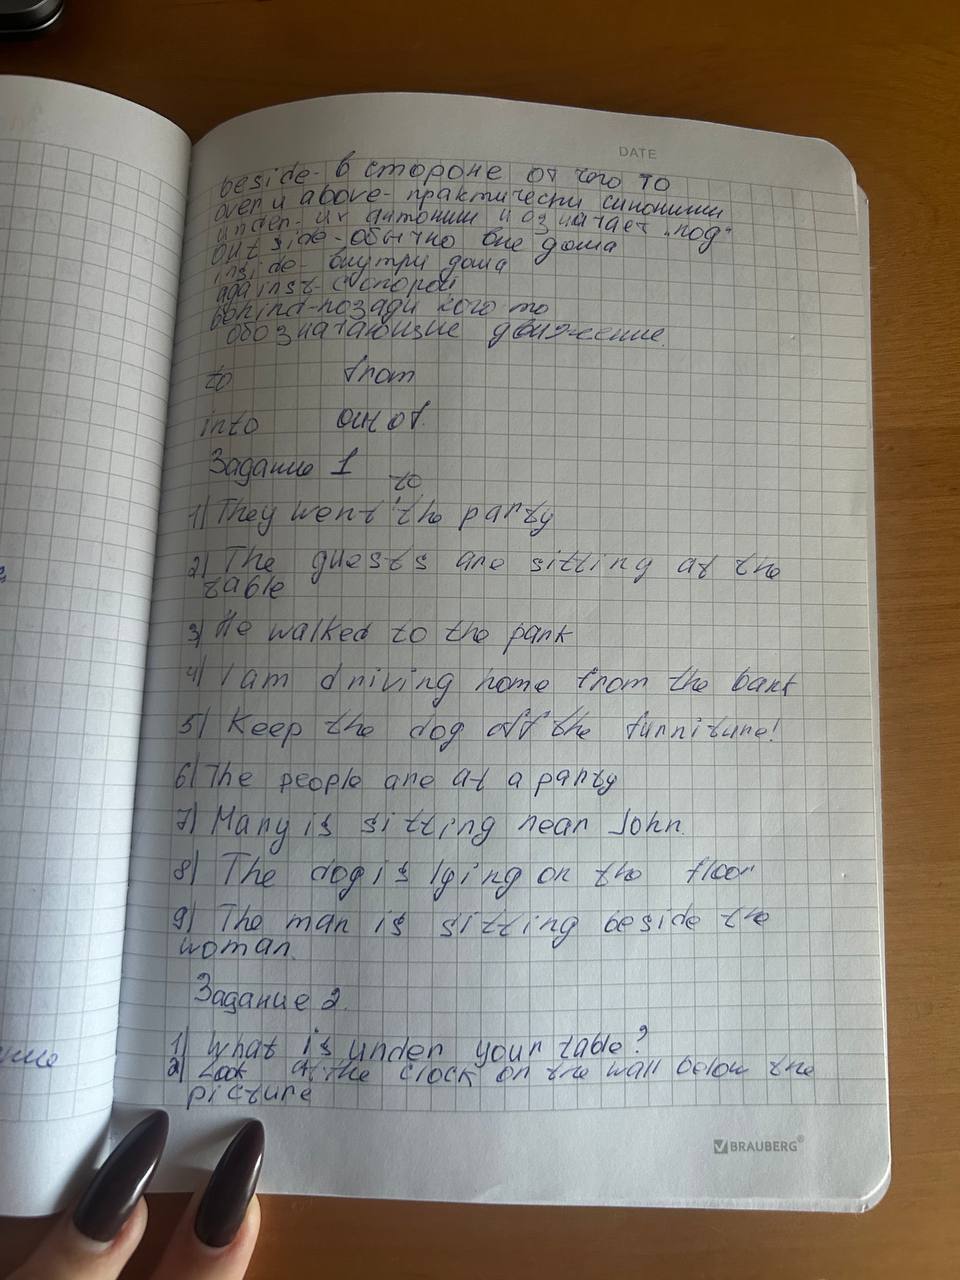 DATE
beside- в стороне от чего то
over и above- практически синонимы
under- их антоним и означает „под"
out side- обычно вне дома
inside- внутри дома
against- с опорой
behind- позади кого то
обозначающие движение.
to from
into out of.
Задание 1
to
1) They went the party
2) The guests are sitting at the
table
3) He walked to the park
4) I am driving home from the bank
5) Keep the dog off the furniture!
6) The people are at a party
7) Mary is sitting near John.
8) The dog is lying on the floor
9) The man is sitting beside the
woman.
Задание 2.
1) What is under your table?
2) Look at the clock on the wall below the
picture
ние
BRAUBERG®